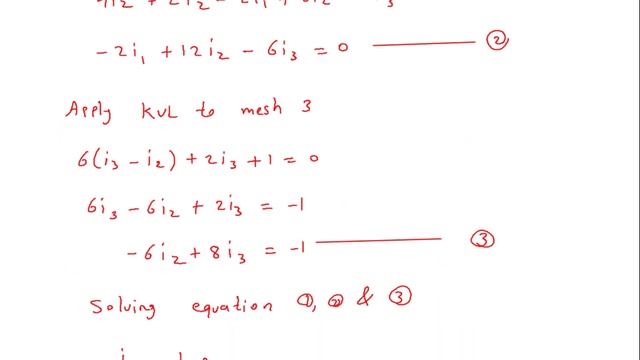 4i₂ + 2i₂ - 2i₁ + 6i₂
-2i₁ + 12i₂ - 6i₃ = 0 ②
Apply KVL to mesh 3
6(i₃ - i₂) + 2i₃ + 1 = 0
6i₃ - 6i₂ + 2i₃ = -1
-6i₂ + 8i₃ = -1 ③
Solving equation ①, ② & ③